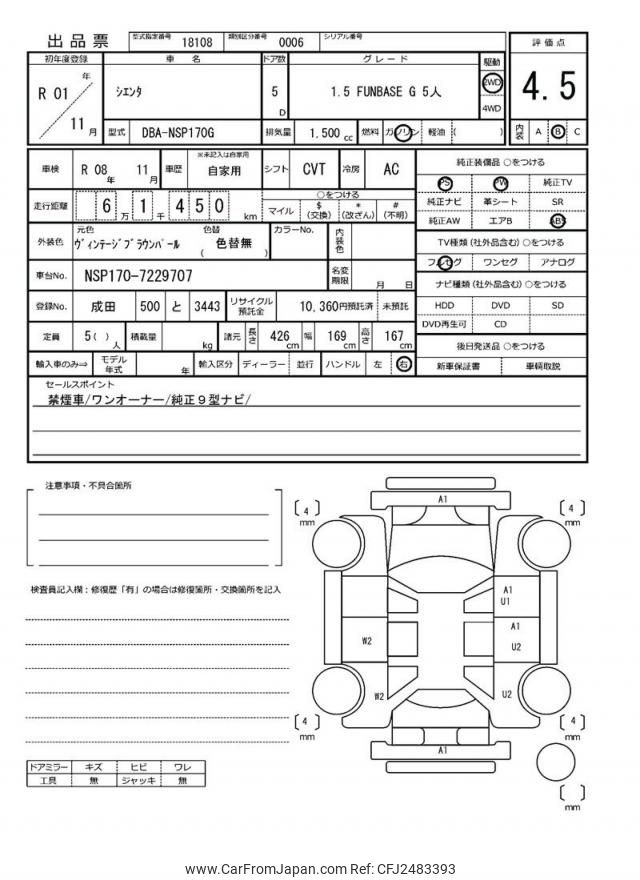 出品票 型式指定番号 18108 類別区分番号 0006 シリアル番号
初年度登録 車名 ドア数 グレード 駆動 評価点
R 01 年 11 月 シエンタ 5 D 1.5 FUNBASE G 5人 2WD 4WD 4.5
型式 DBA-NSP170G 排気量 1,500 cc 燃料 ガソリン 軽油 ( ) 内装 A B C
車検 R 08 年 11 月 車歴 ※未記入は自家用 自家用 シフト CVT 冷房 AC
純正装備品 ○をつける
PS PW 純正TV
純正ナビ 革シート SR
純正AW エアB ABS
走行距離 6 万 1 千 4 5 0 km ○をつける
マイル $ (交換) * (改ざん) # (不明)
外装色 元色 ヴィンテージブラウンパール 色替 ( 色替無 ) カラーNo. 内装色
TV種類 (社外品含む) ○をつける
フルセグ ワンセグ アナログ
車台No. NSP170-7229707 名変期限 月 日
ナビ種類 (社外品含む) ○をつける
HDD DVD SD
DVD再生可 CD
登録No. 成田 500 と 3443 リサイクル預託金 10,360円預託済 未預託
定員 5 ( ) 人 積載量 kg 諸元 長さ 426 cm 幅 169 cm 高さ 167 cm
後日発送品 ○をつける
新車保証書 車輌取説
輸入車のみ⇒ モデル年式 年 輸入区分 ディーラー 並行 ハンドル 左 右
セールスポイント
禁煙車/ワンオーナー/純正９型ナビ/
注意事項・不具合箇所
検査員記入欄：修復歴「有」の場合は修復箇所・交換箇所を記入
A1
[ 4 ] mm
[ 4 ] mm
A1
U1
A1
U2
W2
W2
U2
[ 4 ] mm
[ 4 ] mm
A1
[ ] mm
ドアミラー キズ ヒビ ワレ
工具 無 ジャッキ 無
www.CarFromJapan.com Ref: CFJ2483393